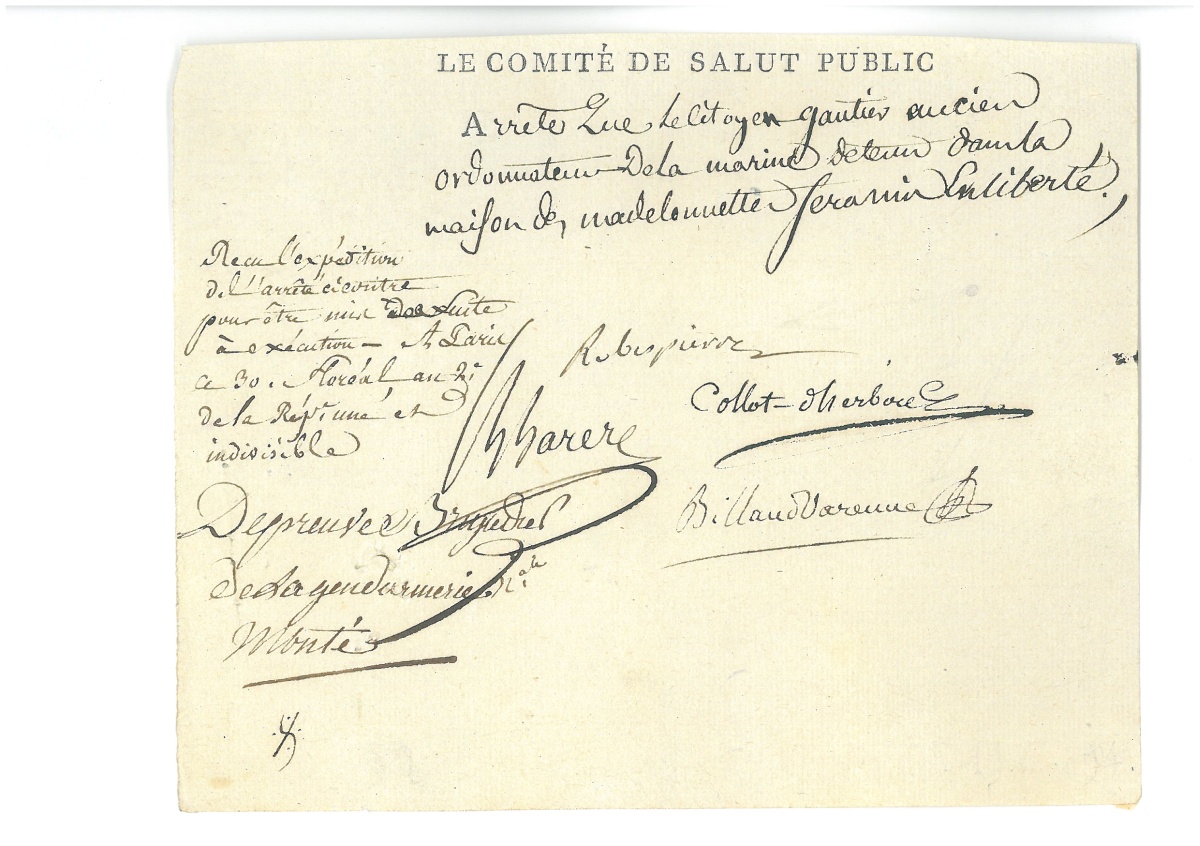 LE COMITÉ DE SALUT PUBLIC
Arrête Que le Citoyen gautier ancien
ordonnateur De la marine détenu dans la
maison des madelonnettes sera mis En liberté.
Recu l'expédition
de l'arrêté ci contre
pour être mis de suite
à exécution - A Paris
ce 30. floréal an 2e
de la Répe. une et
indivisible
Robespierre
Collot-d'herbois
BBarere
Billaud Varenne
Depreuve
de la gendarmerie Nale
Monté